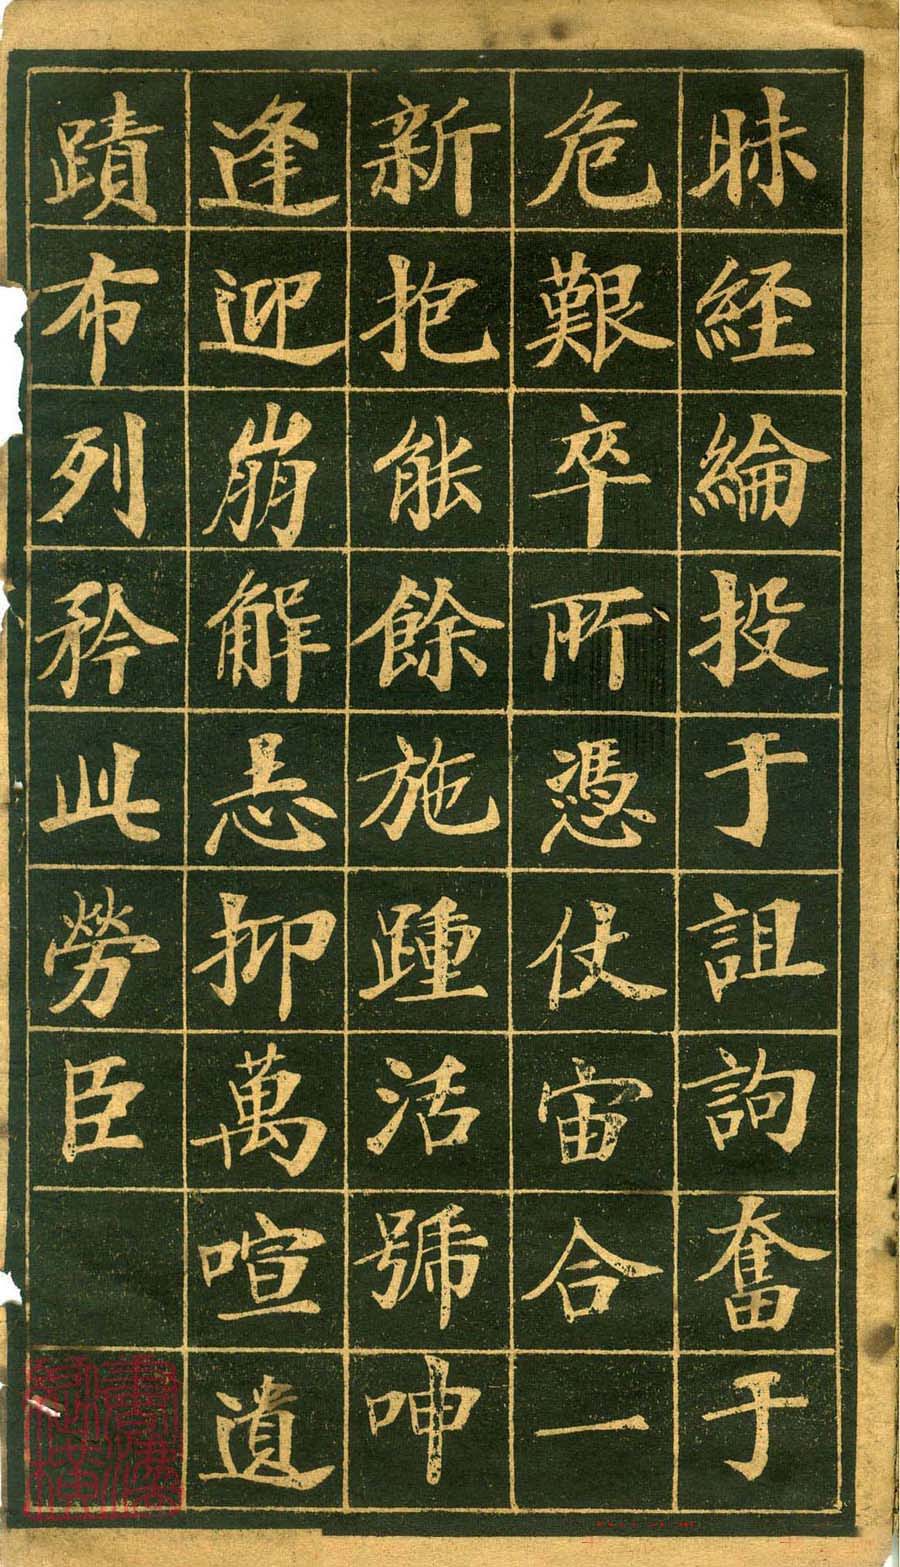 昧經綸投于詛訽奮于
危艱卒所憑仗宙合一
新抱能餘施踵活號呻
逢迎崩解抑萬喧遺
蹟布列矜此勞臣